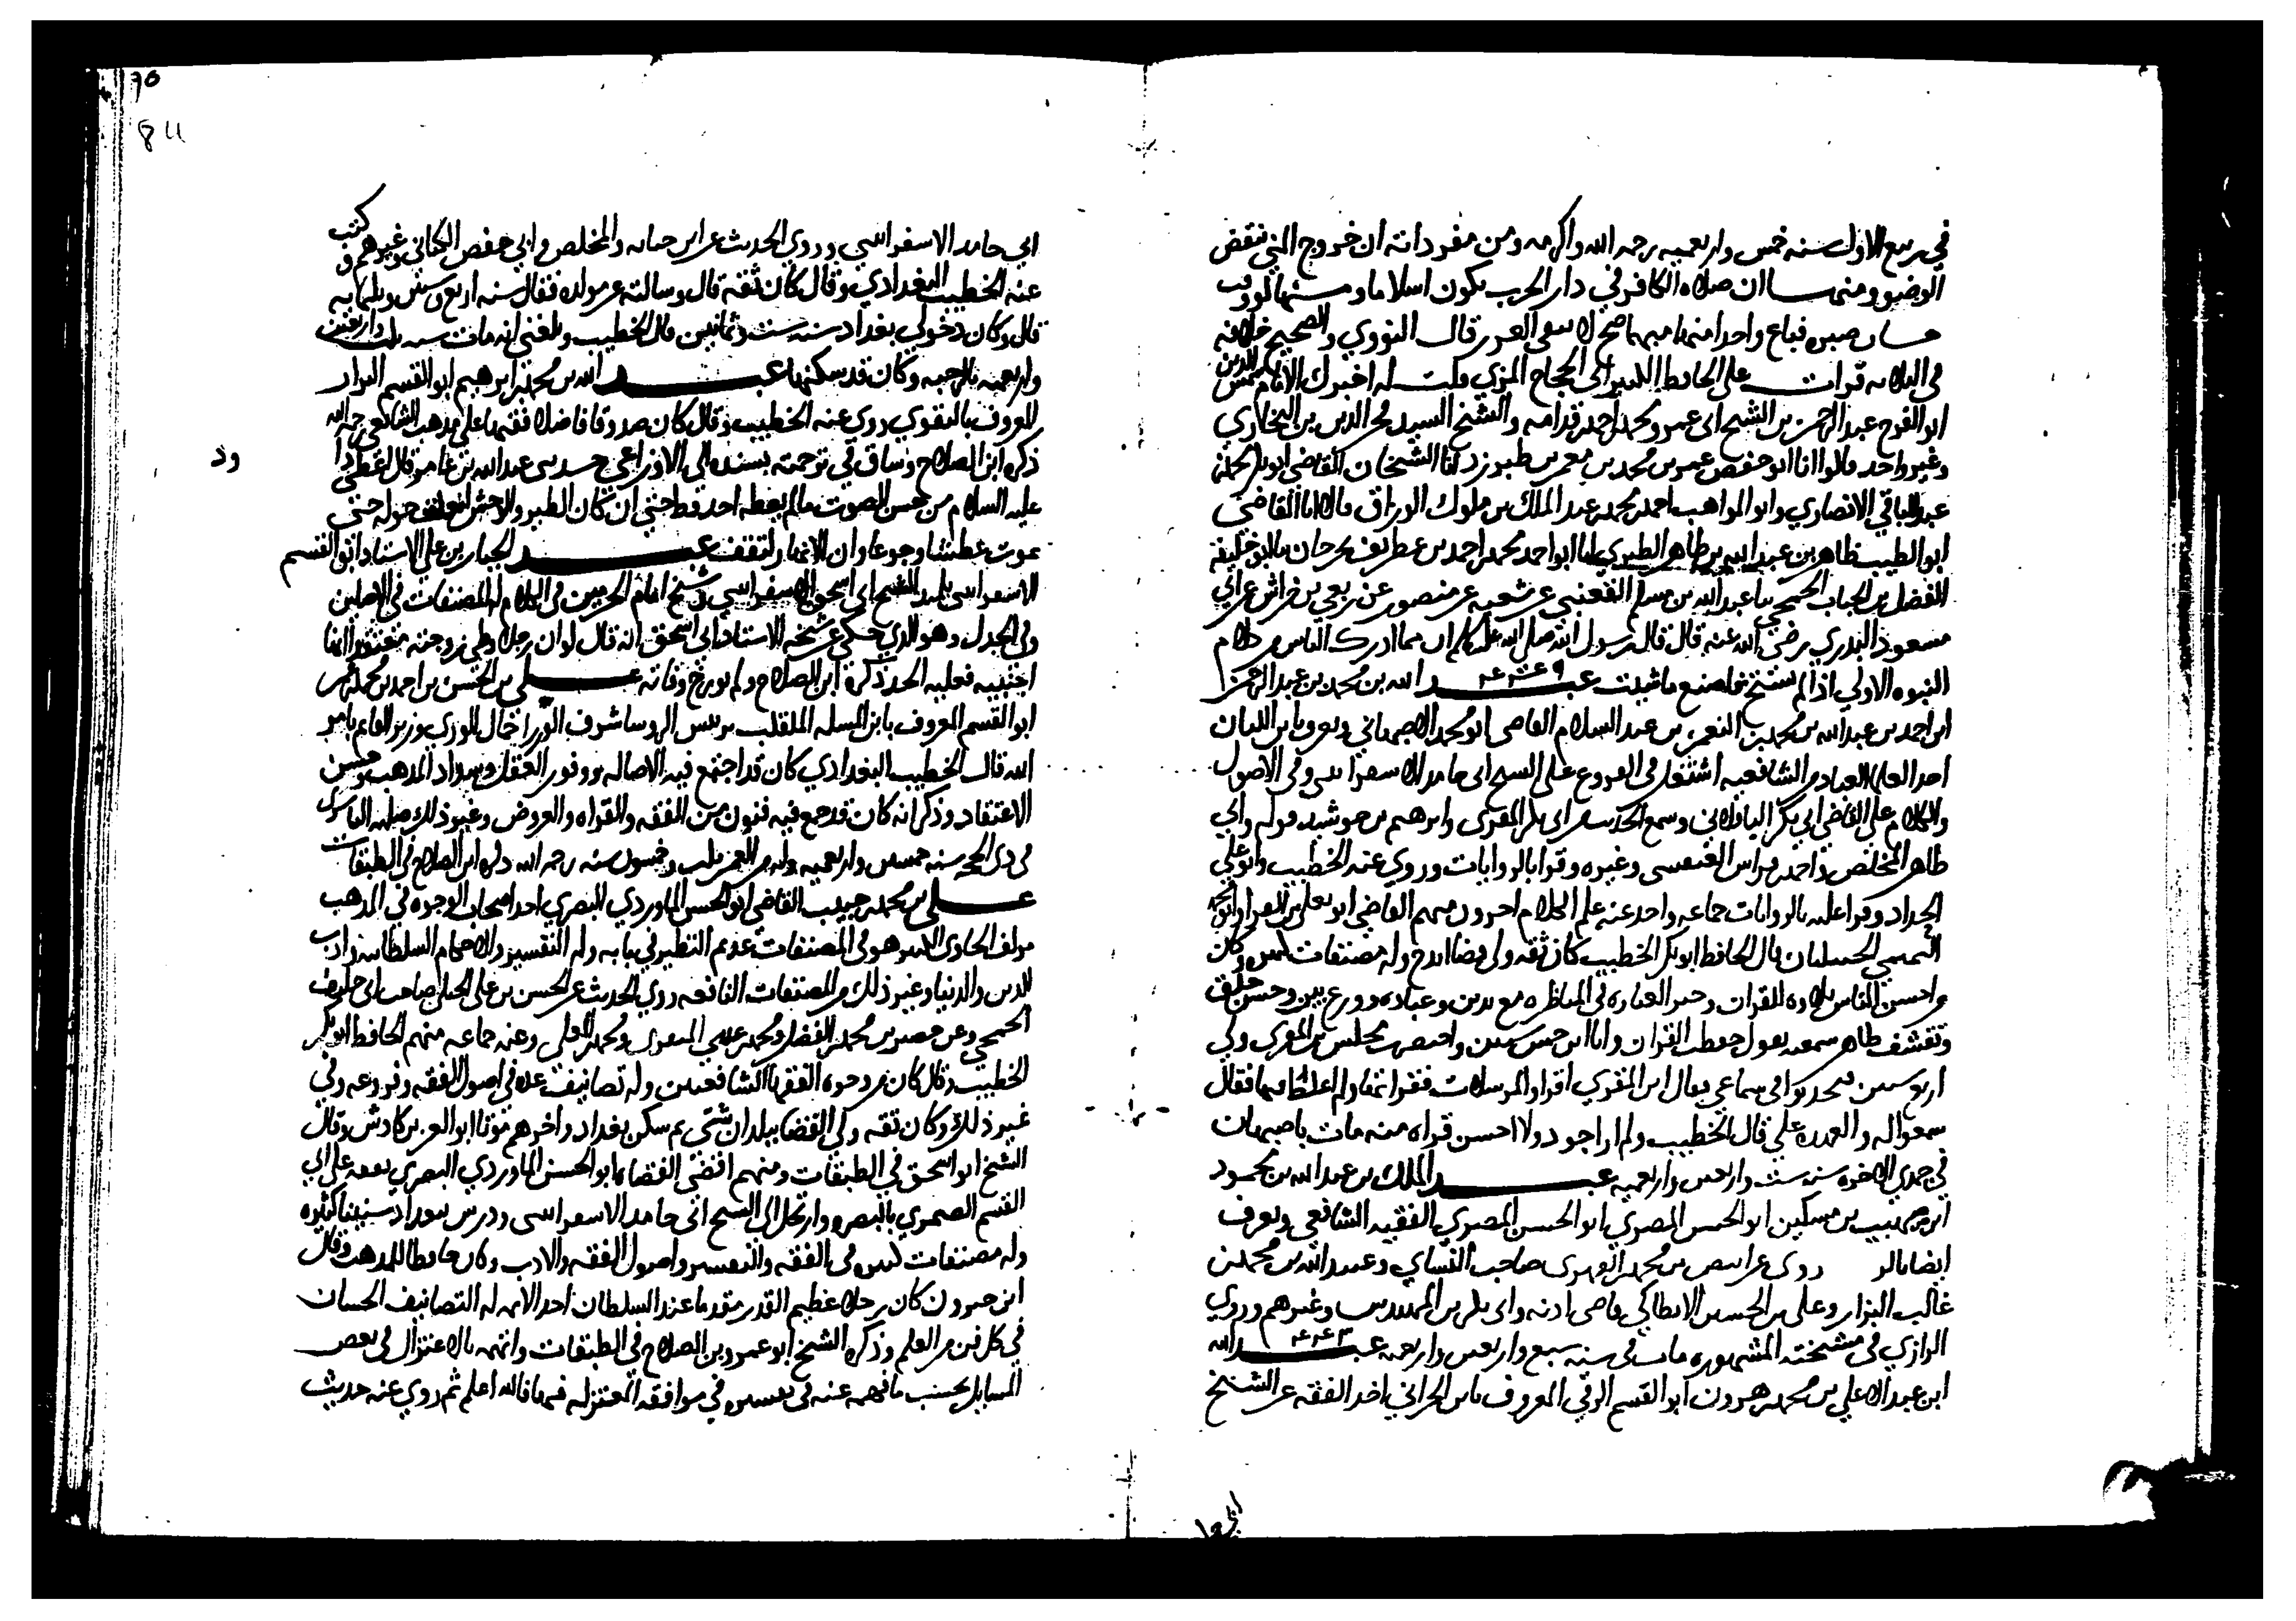 في ربيع الاول سنه خمس واربعميه رحمه الله واكرمه ومن مفرداته ان خروج المني ينقض
الوضو ومنها ان صلاه الكافر في دار الحرب يكون اسلاما ومنها لو
صبره فباع واحدا منهما النووي والصحيح خلافه
قرات على الحافظ الكبير ابي الحجاج المزي قلت له اخبرك الامام شمس الدين
ابو الفرج عبد الرحمن بن الشيخ ابي عمر محمد بن احمد بن قدامه والشيخ السيد فخر الدين بن البخاري
وغير واحد قالوا انا ابو حفص عمر بن محمد بن معمر بن طبرزد انا الشيخان القاضي ابو بكر محمد بن
عبد الباقي الانصاري وابو المواهب احمد بن محمد بن عبد الملك بن ملوك الوراق قالا انا القاضي
ابو الطيب طاهر بن عبد الله بن طاهر الطبري انا ابو احمد محمد بن احمد بن غطريف بجرجان نا ابو خليفه
الفضل بن الحباب الجمحي نا عبد الله بن مسلم القعنبي عن شعبه عن منصور عن ربعي بن خراش عن ابي
مسعود البدري رضي الله عنه قال قال رسول الله صلى الله عليه وسلم ان مما ادرك الناس من كلام
النبوه الاولي اذا لم تستح فاصنع ما شيت عبد الله بن محمد بن عبد الرحمن
ابن احمد بن عبد الله بن محمد بن النعمن بن عبد السلام القاضي ابو محمد الاصبهاني ويعرف بابن اللبان
احد العلما العباد من الشافعيه اشتغل في الفروع على الشيخ ابي حامد الاسفرايني وفي الاصول
والكلام علي القاضي ابي بكر الباقلاني وسمع الحديث من ابي بكر المقري وابرهيم بن خرشيد قوله وابي
طاهر المخلص واحمد بن فراس العبقسي وغيره وقرا بالروايات وروي عنه الخطيب وابو علي
الحداد وقرا عليه بالروايات جماعه واخذ عنه علم الكلام اخرون منهم القاضي ابو يعلى بن الفرا وابو محمد
التميمي الحنبليان قال الحافظ ابو بكر الخطيب كان ثقه ولي قضا ايدج وله مصنفات كثيره وكان
من احسن الناس تلاوه للقران وجيز العباره في المناظره مع تدين وعباده وورع بين وحسن خلق
وتقشف ظاهر سمعته يقول حفظت القران وانا ابن خمس سنين واحضرت مجلس ابن المقري ولي
اربع سنين فتحدثوا في سماعي فقال ابن المقري اقرا والمرسلات فقراتها ولم اغلط فيها فقال
سمعوا له والعهده علي قال الخطيب ولم ار اجود ولا احسن قراه منه مات باصبهان
في جمدي الاخره سنه ست واربعين واربعميه عبد الملك بن عبد الله بن محمود
ابن صهيب بن مسكين ابو الحسن المصري ابو الحسن المصري الفقيه الشافعي ويعرف
ايضا بالز روى عن ابيض بن محمد الفهري صاحب النساي وعبيد الله بن محمد بن
غالب البزار وعلي بن الحسين الانطاكي قاضي ادنه وابي بكر بن المهندس وغيرهم وروي
الرازي في مشيخته المشهوره مات في سنه سبع واربعين واربعميه عبد الله
ابن عبد الله علي بن محمد بن هرون ابو القسم الرقي المعروف بابن الحراني اخذ الفقه عن الشيخ
ابي حا
٦٥
84
ابي حامد الاسفرايني وروي الحديث عن ابن حبابه والمخلص وابي حفص الكتاني وغيرهم وكتب
عنه الخطيب البغدادي وقال كان ثقه قال وسالته عن مولده فقال سنه اربع وستين وثلثمايه
قال وكان دخولي بغداد سنه ست وثمانين قال الخطيب وبلغني انه مات سنه ثلث واربعين
واربعميه بالرحبه وكان قد سكنها عبد الله بن محمد بن ابرهيم ابو القسم البزار
المعروف بالبقوي روي عنه الخطيب وقال كان صدوقا فاضلا فقيها على مذهب الشافعي رحمه الله
ذكره ابن الصلاح وساق في ترجمته بسنده الى الاوزاعي حدثني عبد الله بن عامر قال اعطي دا
ود
عليه السلام من حسن الصوت ما لم يعطه احد قط حتى ان كان الطير والوحش لتعكف حوله حتى
يموت عطشا وجوعا وان الانهار لتقف عبد الجبار بن علي الاستاد ابو القسم
الاسفرايني تلميذ الشيخ ابي اسحق الاسفرايني وشيخ امام الحرمين في الكلام له المصنفات في الاصلين
وفي الجدل وهو الذي حكي عن شيخه الاستاد ابي اسحق انه قال لو ان رجلا وطي زوجته معتقدا انها
اجنبيه فعليه الحد ذكره ابن الصلاح ولم يورخ وفاته علي بن الحسن بن احمد بن محمد بن عمر
ابو القسم المعروف بابن المسلمه الملقب برييس الروسا شرف الوزرا جمال الوري وزير القايم بامر
الله قال الخطيب البغدادي كان قد اجتمع فيه الاصاله ووفور العقل وسداد المذهب وحسن
الاعتقاد وذكر انه كان قد جمع فيه فنون من الفقه والقراه والعروض وغير ذلك صلبه البساسيري
في ذي الحجه سنه خمسين واربعميه وله من العمر ثلث وخمسون سنه رحمه الله ذكره ابن الصلاح في الطبقات
علي بن محمد بن حبيب القاضي ابو الحسن الماوردي البصري احد اصحاب الوجوه في المذهب
مولف الحاوي الكبير هو في المصنفات عديم النظير في بابه وله التفسير والاحكام السلطانيه وادب
الدين والدنيا وغير ذلك من المصنفات النافعه روي الحديث عن الحسن بن علي الجبلي صاحب ابي خليفه
الجمحي وعن جعفر بن محمد بن الفضل ومحمد بن عدي المنقري ومحمد بن المعلى وعنه جماعه منهم الحافظ ابو بكر
الخطيب وقال كان من وجوه الفقها الشافعيين وله تصانيف عده في اصول الفقه وفروعه وفي
غير ذلك وكان ثقه ولي القضا ببلدان شتى ثم سكن بغداد واخرهم موتا ابو العز بن كادش وقال
الشيخ ابو اسحق في الطبقات ومنهم اقضى القضاه ابو الحسن الماوردي البصري تفقه على ابي
القسم الصيمري بالبصره وارتحل الى الشيخ ابي حامد الاسفرايني ودرس ببغداد سنينا كثيره
وله مصنفات كثيره في الفقه والتفسير واصول الفقه والادب وكان حافظا للمذهب وقال
ابن خيرون كان رجلا عظيم القدر متقدما عند السلطان احد الايمه له التصانيف الحسان
في كل فن من العلم وذكره الشيخ ابو عمرو بن الصلاح في الطبقات واتهمه بالاعتزال في بعض
المسايل بحسب ما فهمه عنه في تفسيره في موافقه المعتزله فيها فالله اعلم ثم روي عنه حديث